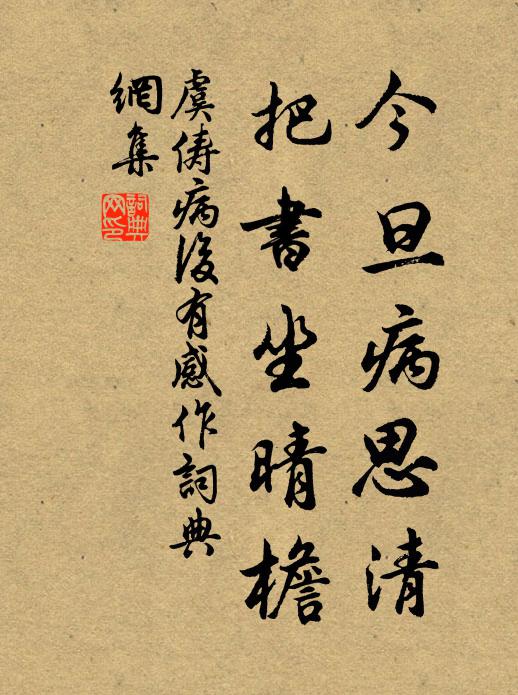 今旦病思清
把書坐晴檐
虞儔病後有感作詞典
網集
詞典
网印